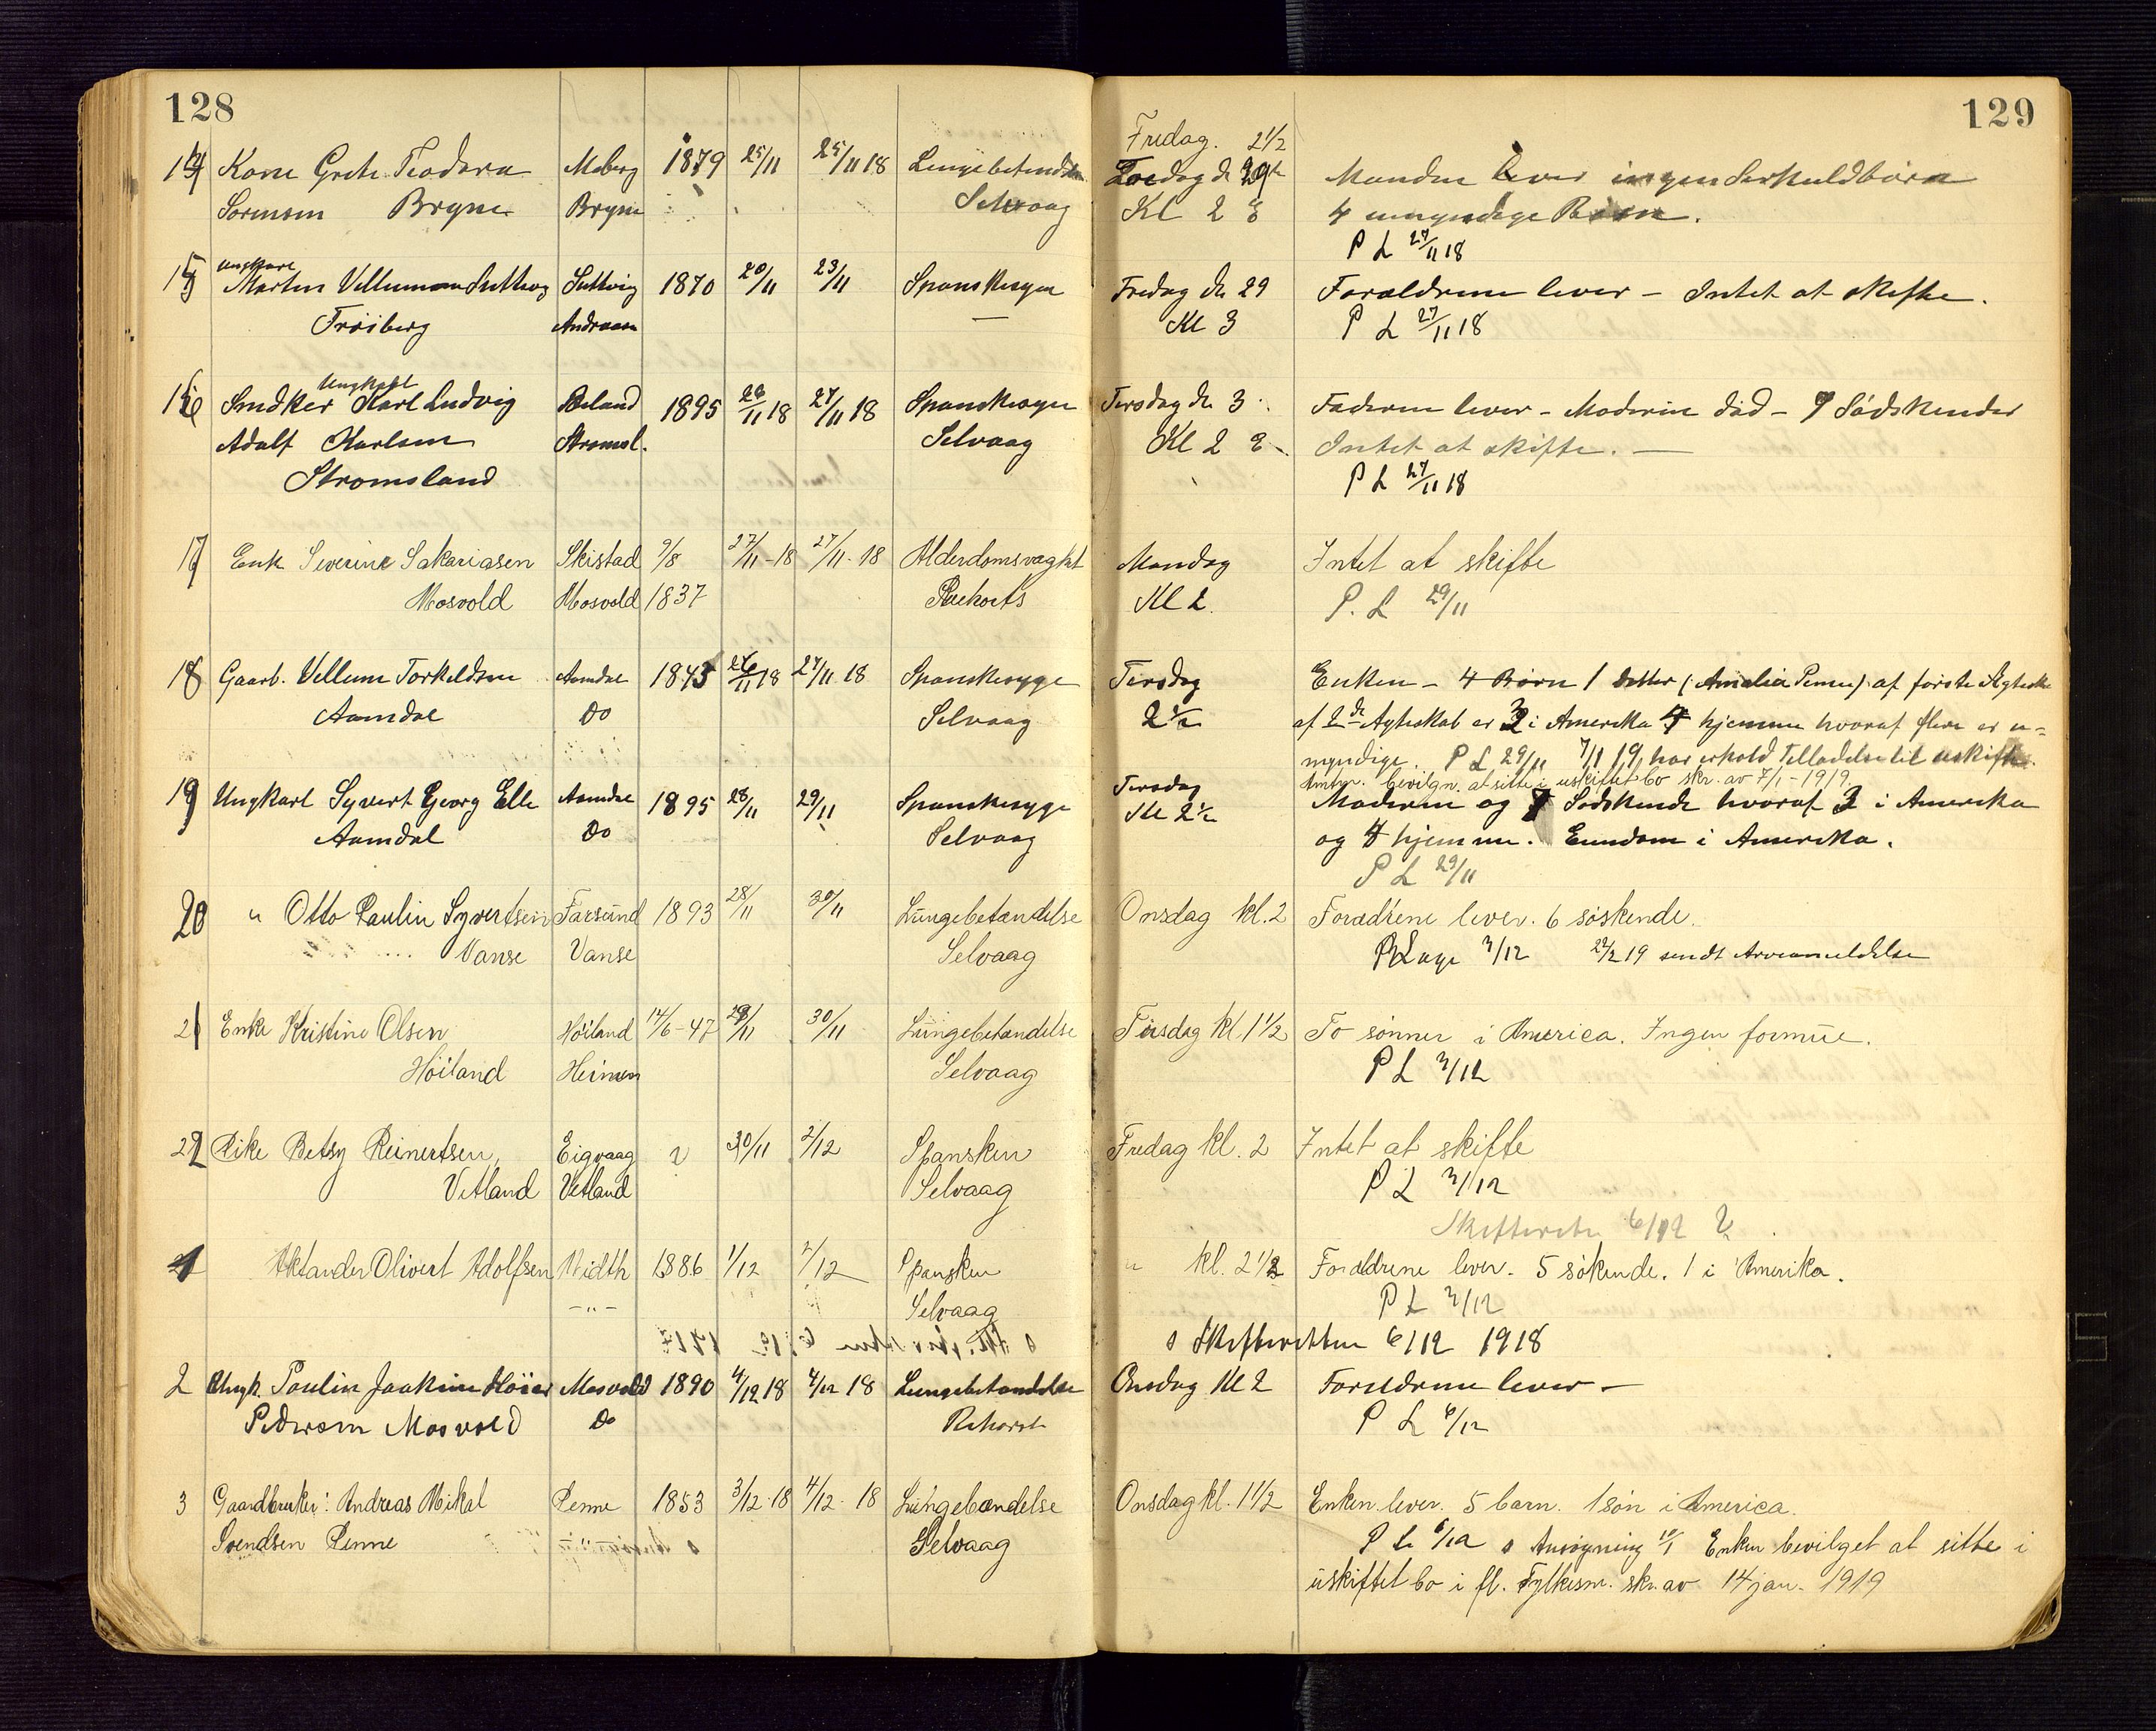 128
129
14 Kone Grete Teodora Moberg 1879 25/11 25/11 18 Lungebetendelse
Sørensen Bryne Bryne Selvaag
Fredag. 2 1/2
Kl 2 E
Manden lever ingen Særkuldbørn
4 umyndige Børn.
P L 27/11 18
15 ungkarl
Martin Vellumsen 1870 20/11 23/11 Spanskesyge
Frøiberg Andreasen
Fredag de 29
Kl 3
Forældrene lever - Intet at skifte.
P L 27/11 18
16 Ungkarl
Snedker Karl Ludvig Beland 1895 26/11 18 27/11 18 Spanskesyge
Adolf Karlsen Stromsl. Selvaag
Stromsland
Tirsdag de 3
Kl 2 E
Faderen lever - Moderen død - 9 Sødskender
Intet at skifte. -
P L 27/11 18
17 Enk Severine Sakariasen Skistad 9/8 27/11-18 27/11-18 Alderdomsvaghet
Mosvold Mosvold 1837
Mandag
Kl 2.
Intet at skifte
P. L 29/11
18 Gaarb. Vellum Torkeldsen Aamdal 1843 26/11 18 27/11 18 Spanskesyge
Aamdal Do Selvaag
Tirsdag
2 1/2
Enken - 4 Børn 1 datter (Amalia Penne) af første Ægtesk
af 2de Ægteskab er 3 i Amerika 4 hjemme hvoraf flere er u-
myndige. P L 29/11 7/1 19, har erhold Tilladelse til uskifte.
Amtm. bevilgn. at sitte i uskiftet bo skr. av 7/1-1919
19 Ungkarl Syvert Georg Elle Aamdal 1895 28/11 29/11 Spanskesyge
Aamdal Do Selvaag
Tirsdag
Kl 2 1/2
Moderen og 7 Sødskende hvoraf 3 i Amerika
og 4 hjemme. Eiendom i Amerika.
P L 29/11
20 " Otto Paulin Syvertsen Farsund 1893 28/11 30/11 Lungebetændelse
Vanse Vanse Selvaag
Onsdag kl. 2
Forældrene lever. 6 søskende.
3/12 22/2 19 sendt Arveanmeldelse
21 Enke Kristine Olsen Høiland 14/6-47 29/11 30/11 Lungebetændelse
Høiland Selvaag
Tirsdag kl. 1 1/2
To sønner i America. Ingen formue.
P L 3/12
22 Pike Betsy Reinertsen, Eigvaag 30/11 2/12 Spansken
Vetland Vetland Selvaag
Fredag kl. 2
Intet at skifte
P L 3/12
Skifteretten 6/12
1 Olivert Adolfsen Midth 1886 1/12 2/12 Spansken
-"- Selvaag
" kl. 2 1/2
Forældrene lever. 5 søkende. 1 i Amerika.
P L 3/12
s Skifteretten 6/12 1918
2 Ungk. Paulin Joakim Høier Mosvold 1890 4/12 18 4/12 18 Lungebetændelse
Pedersen Mosvold Do
Onsdag Kl 2
Forældrene lever -
P L 6/12
3 Gaardbruker: Andreas Mikal Penne 1853 3/12-18 4/12-18 Lungebændelse
Svendsen Penne -"- Selvaag
Onsdag kl. 1 1/2
Enken lever. 5 barn. 1 søn i America.
P L 6/12 s Ansøgning 10/1 Enken bevilget at sitte i
uskiftet bo i fl. Fylkesm. skr. av 14 jan. 1919